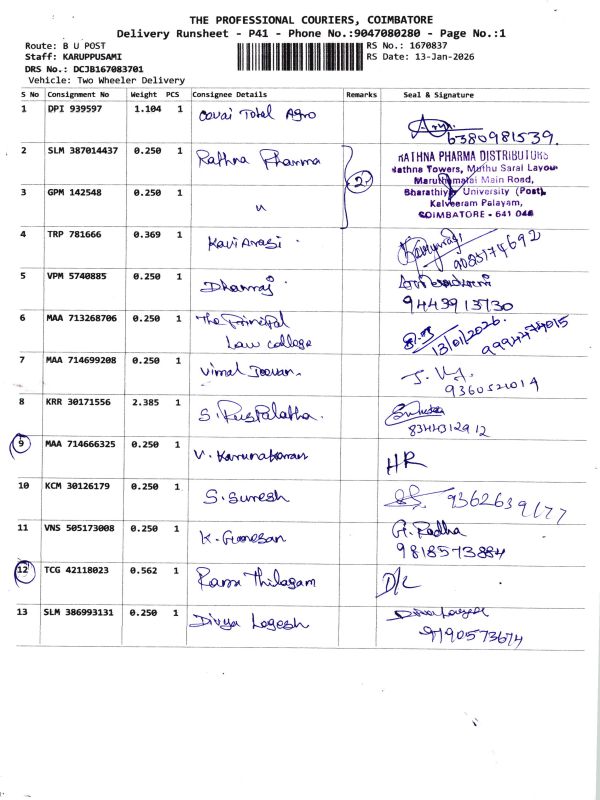 THE PROFESSIONAL COURIERS, COIMBATORE
Delivery Runsheet - P41 - Phone No.:9047080280 - Page No.:1
Route: B U POST
RS No.: 1670837
Staff: KARUPPUSAMI
RS Date: 13-Jan-2026
DRS No.: DCJB167083701
Vehicle: Two Wheeler Delivery
S No Consignment No Weight PCS Consignee Details Remarks Seal & Signature
1 DPI 939597 1.104 1 Covai Total Agro
6380981539.
2 SLM 387014437 0.250 1 Rathna Pharma 2
RATHNA PHARMA DISTRIBUTORS
Rathna Towers, Muthu Sarai Layout
Maruthamalai Main Road,
Bharathiyar University (Post),
Kalveeram Palayam,
COIMBATORE - 641 046
3 GPM 142548 0.250 1 "
4 TRP 781666 0.369 1 Kavi Arasi.
9085174692
5 VPM 5740885 0.250 1 Dhanraj.
9443913730
6 MAA 713268706 0.250 1 The Principal
Law college
13/01/2026.
9994474015
7 MAA 714699208 0.250 1 Vimal Jeevan.
9360521014
8 KRR 30171556 2.385 1 S. Puspalatha.
8344312912
9 MAA 714666325 0.250 1 V. Karunakaran HR
10 KCM 30126179 0.250 1 S. Suresh 9362639177
11 VNS 505173008 0.250 1 K. Gunesan G. Radha
9818573884
12 TCG 42118023 0.562 1 Rama Thilagam D/L
13 SLM 386993131 0.250 1 Divya Logesh
9190573674